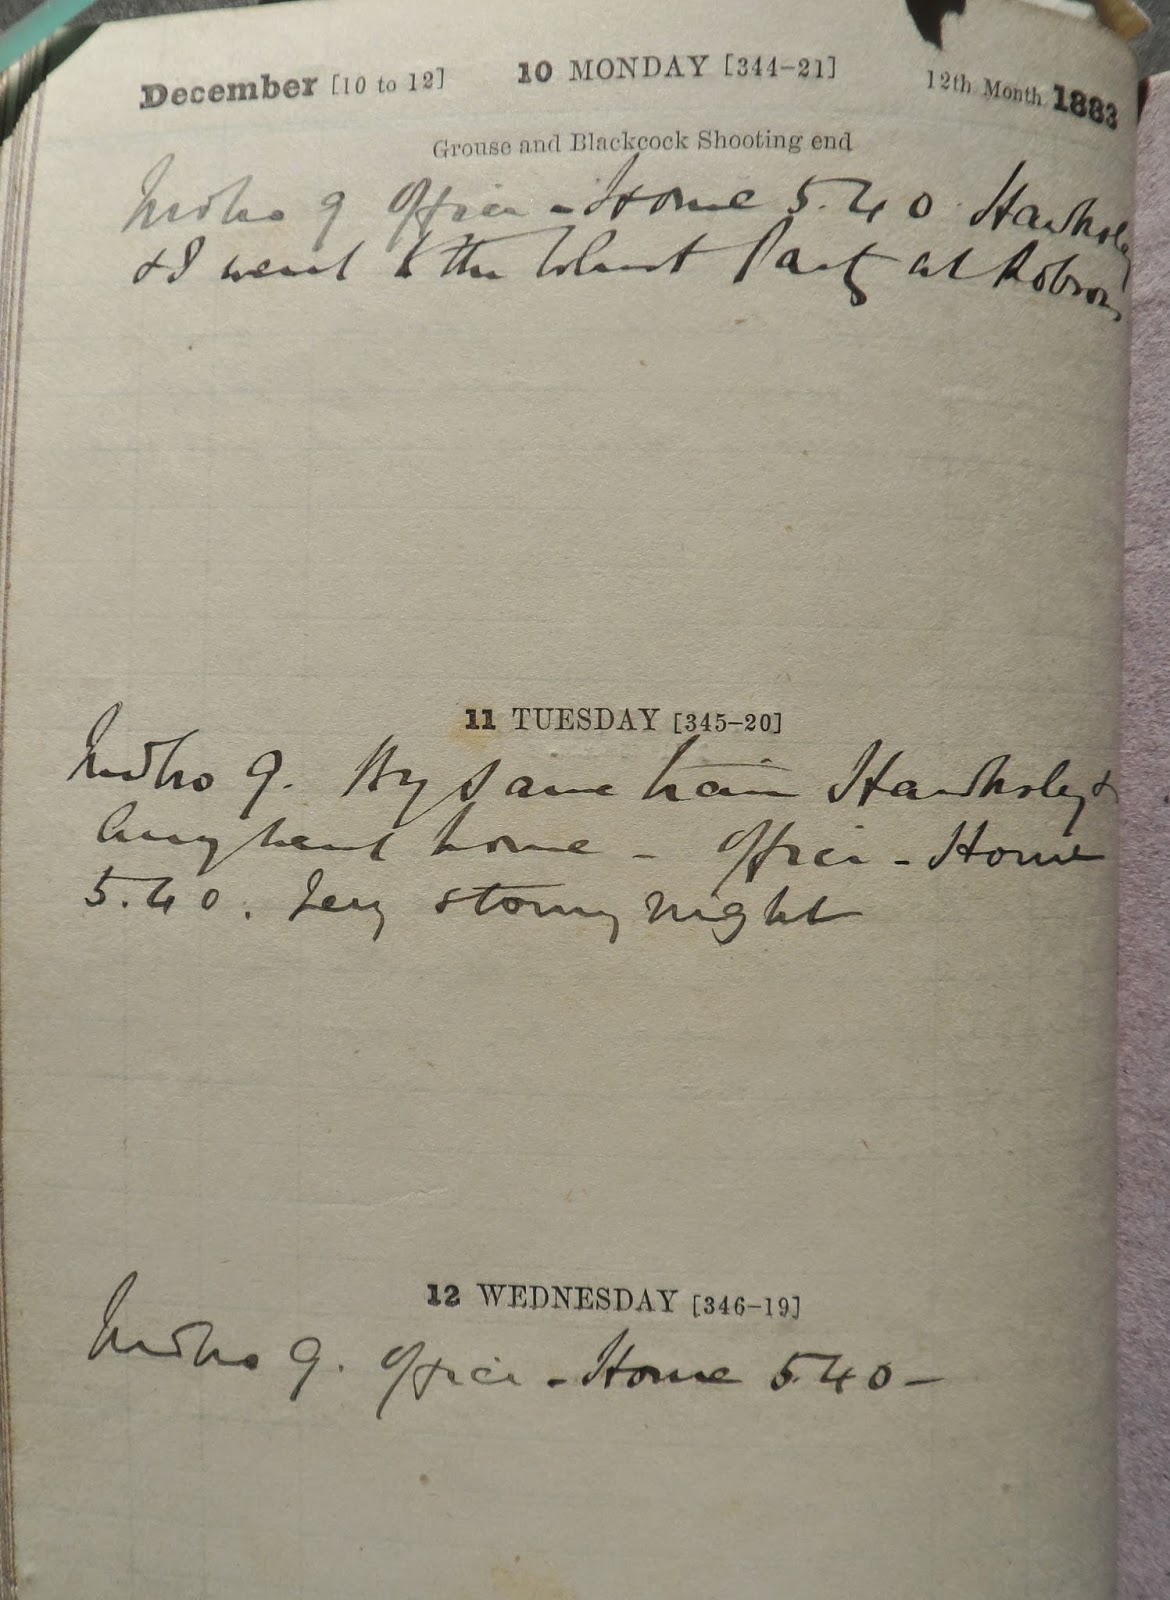 December [10 to 12] 10 MONDAY [344-21] 12th Month 1883
Grouse and Blackcock Shooting end
9 Office - Home 5.40 Hawksley
& I went to the Whist Party at Robsons
11 TUESDAY [345-20]
9. By same train Hawksley &
Amy went home - Office - Home
5.40. Very stormy night
12 WEDNESDAY [346-19]
9. Office - Home 5.40 -